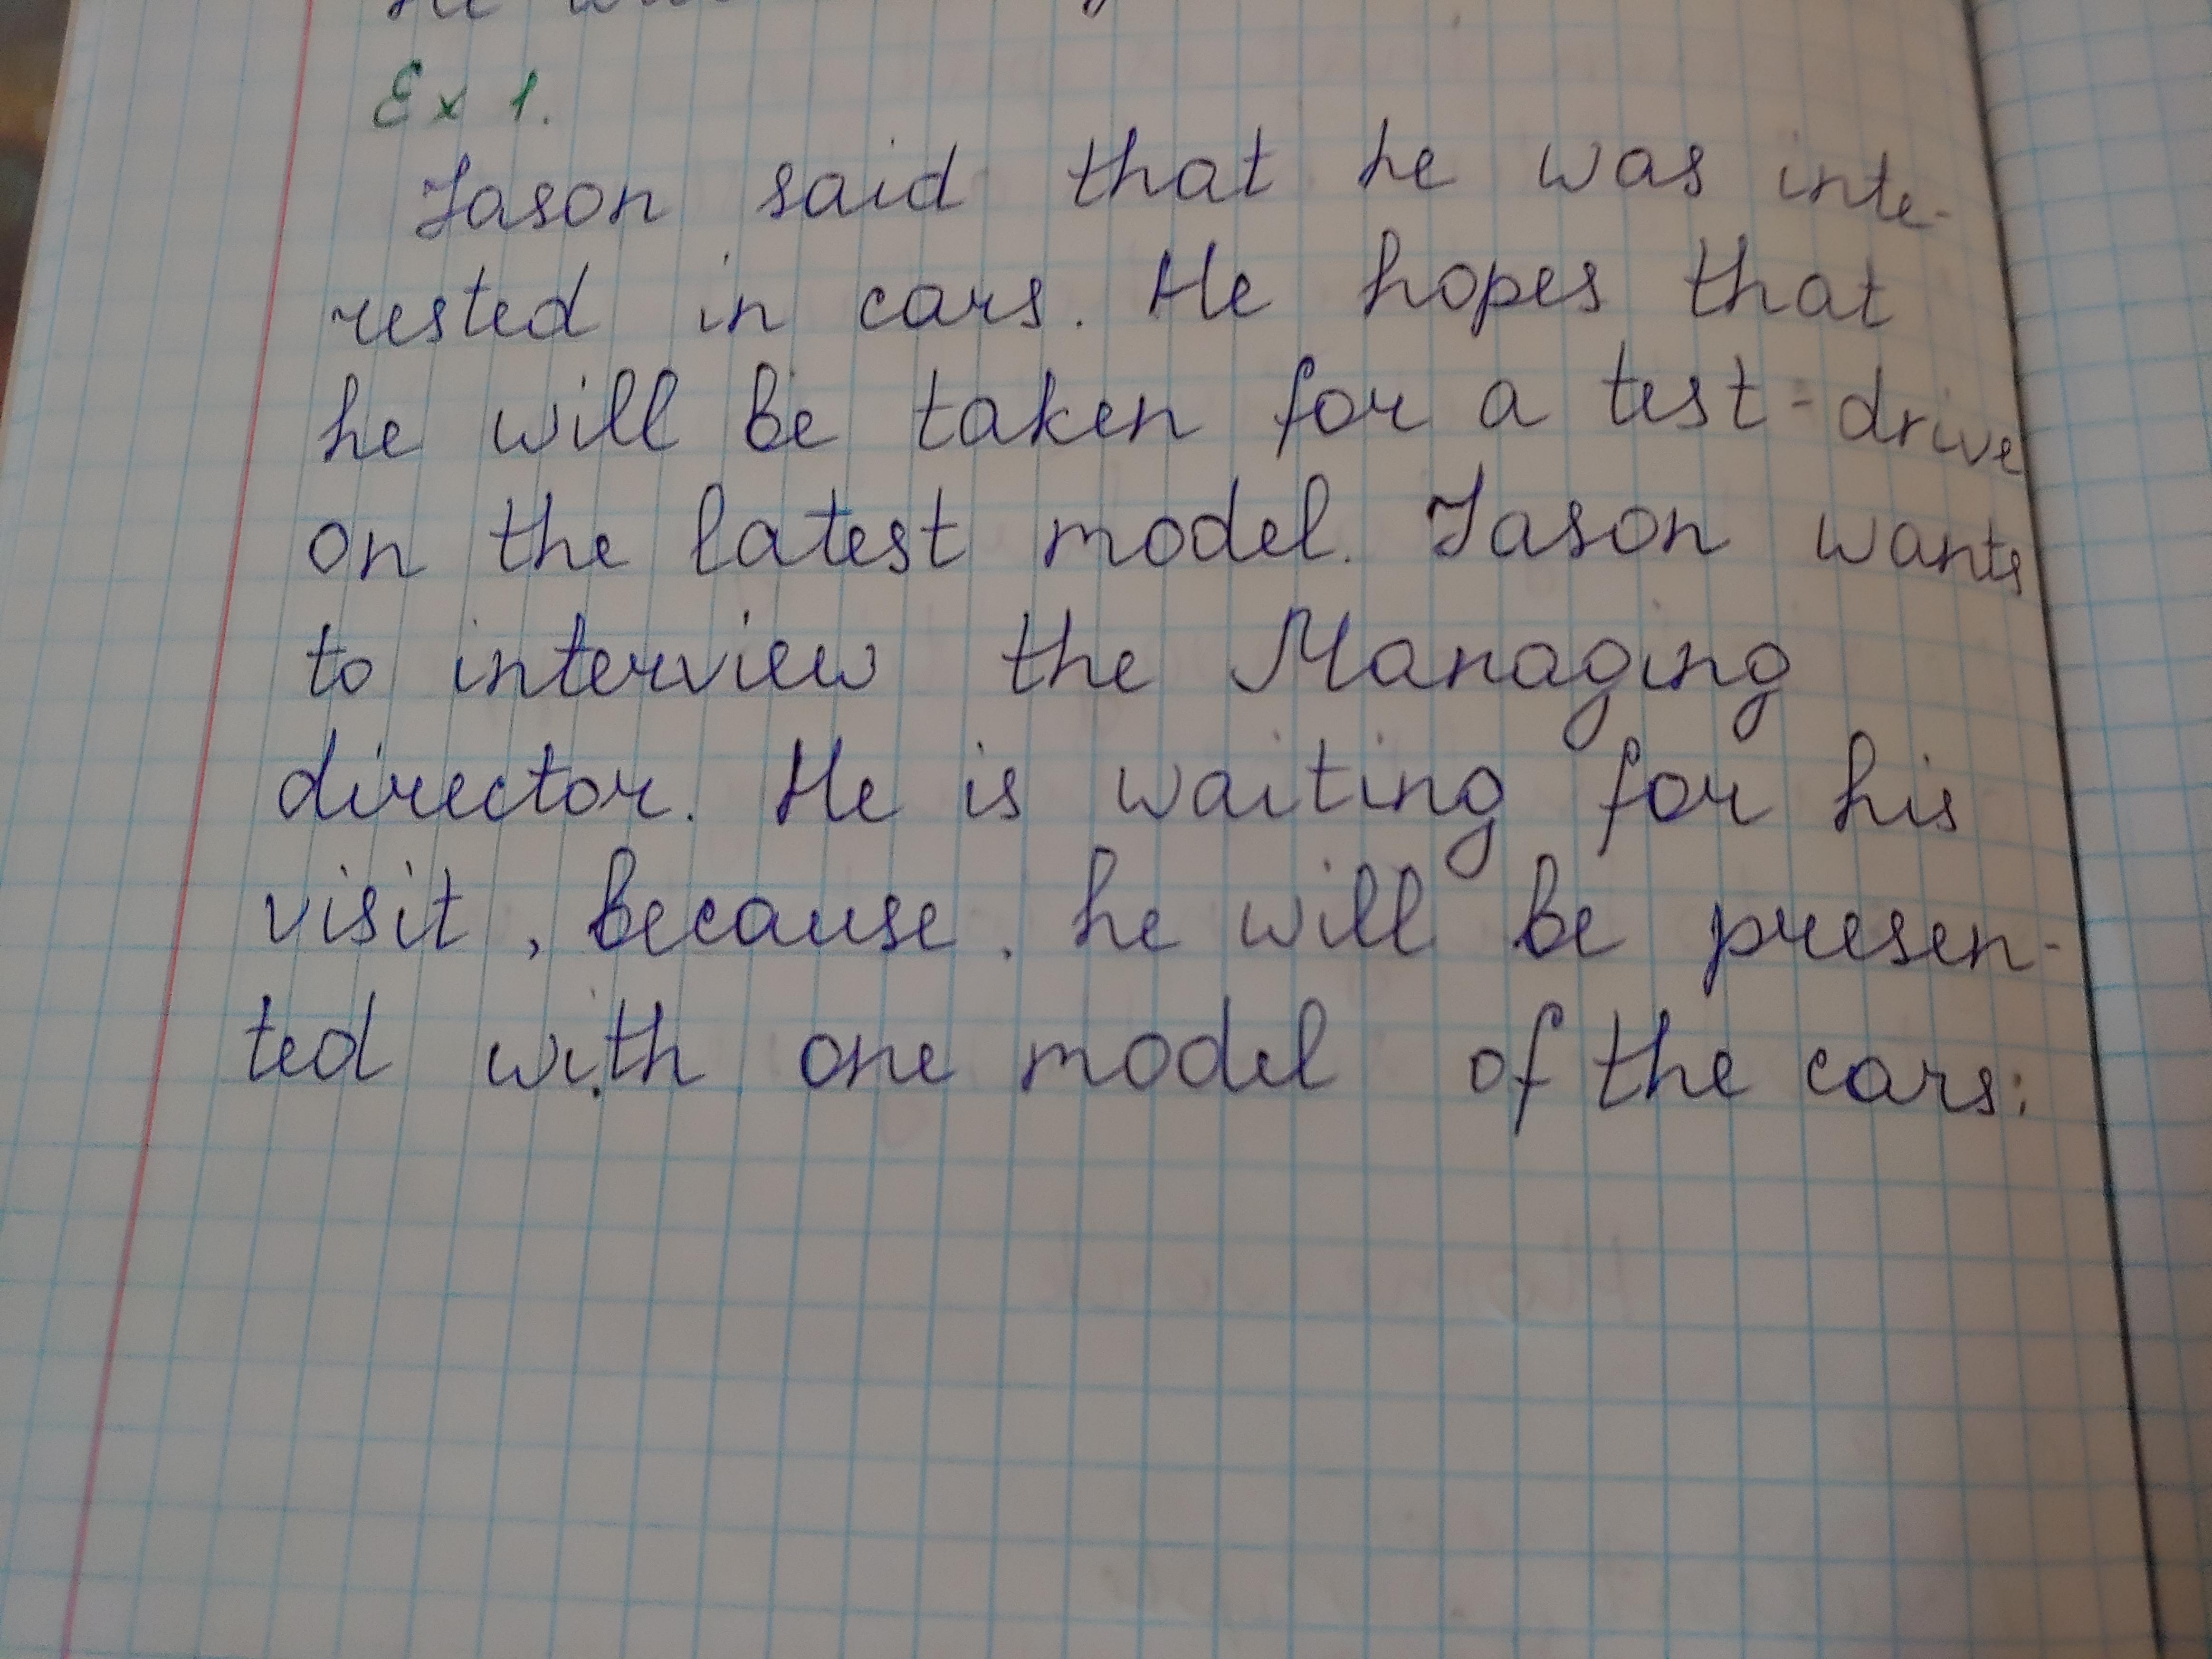 He
Ex 1.
Jason said that he was inte-
rested in cars. He hopes that
he will be taken for a test-drive
on the latest model. Jason wants
to interview the Managing
director. He is waiting for his
visit, because. he will be presen-
ted with one model of the cars: